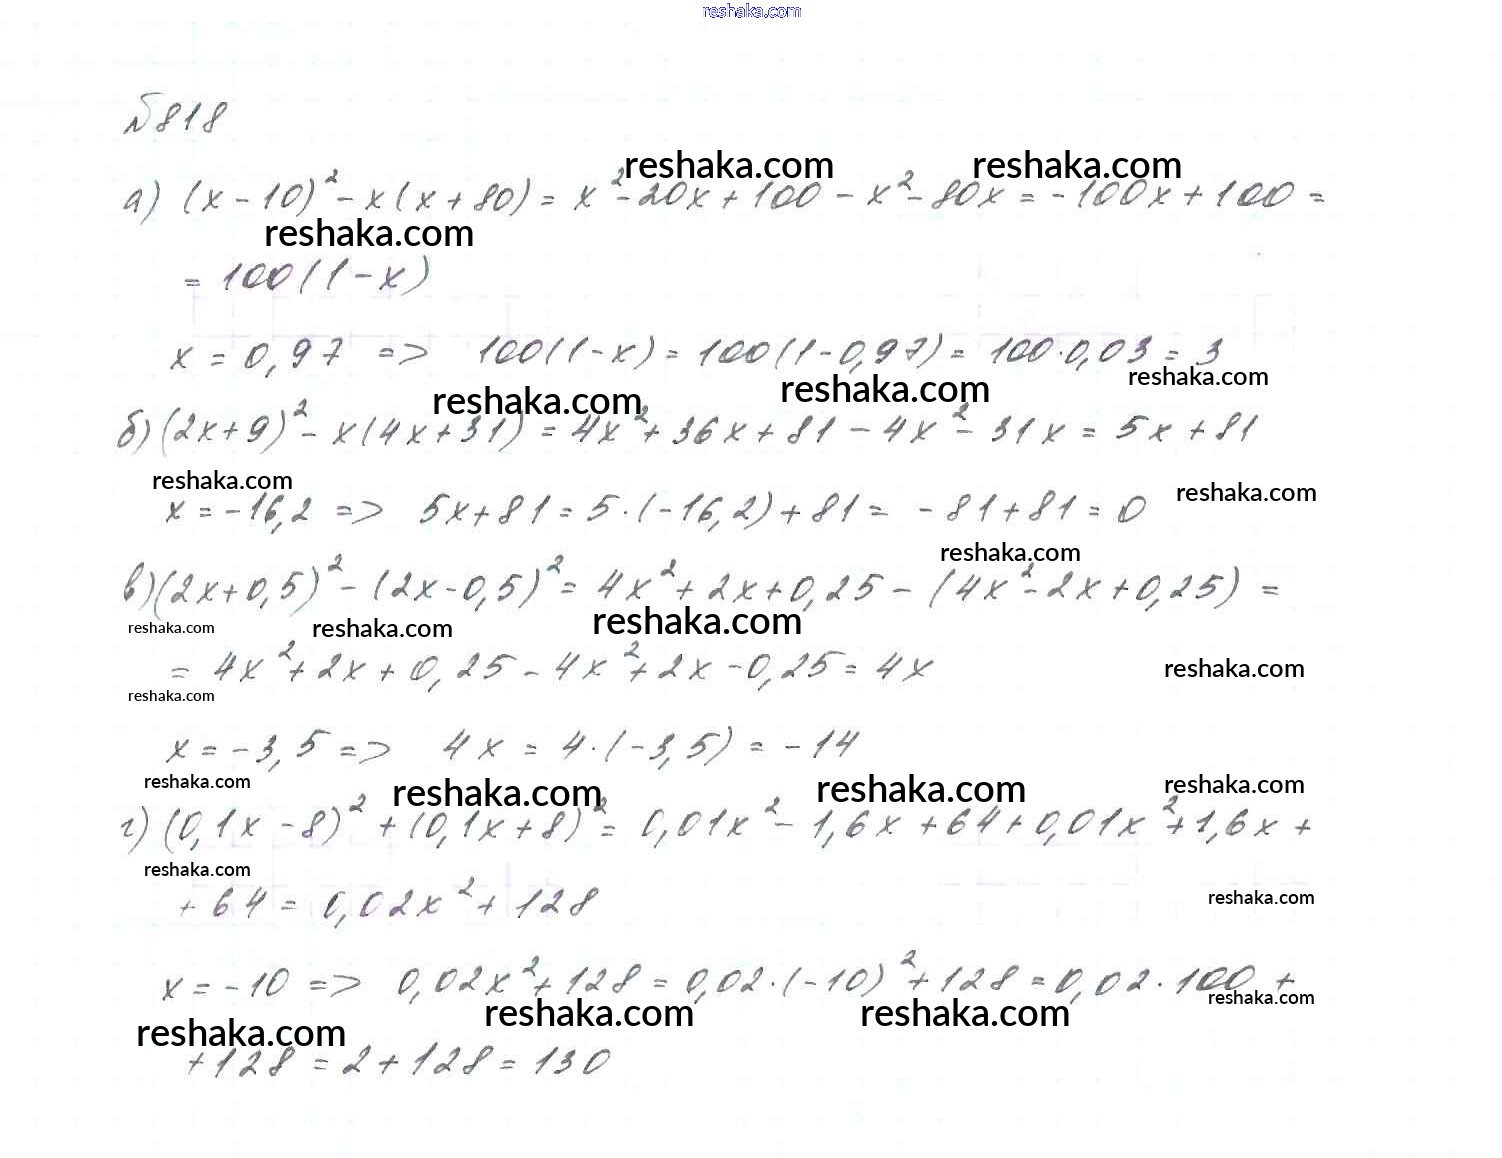 reshaka.com
№818
reshaka.com reshaka.com
а) (x - 10)² - x(x + 80) = x² - 20x + 100 - x² - 80x = -100x + 100 =
reshaka.com
= 100(1 - x)
x = 0,97 => 100(1 - x) = 100(1 - 0,97) = 100·0,03 = 3
reshaka.com reshaka.com reshaka.com
б) (2x + 9)² - x(4x + 31) = 4x² + 36x + 81 - 4x² - 31x = 5x + 81
reshaka.com reshaka.com
x = -16,2 => 5x + 81 = 5·(-16,2) + 81 = -81 + 81 = 0
reshaka.com
в) (2x + 0,5)² - (2x - 0,5)² = 4x² + 2x + 0,25 - (4x² - 2x + 0,25) =
reshaka.com reshaka.com reshaka.com
= 4x² + 2x + 0,25 - 4x² + 2x - 0,25 = 4x
reshaka.com
reshaka.com
x = -3,5 => 4x = 4·(-3,5) = -14
reshaka.com reshaka.com reshaka.com reshaka.com
г) (0,1x - 8)² + (0,1x + 8)² = 0,01x² - 1,6x + 64 + 0,01x² + 1,6x +
reshaka.com
+ 64 = 0,02x² + 128
reshaka.com
x = -10 => 0,02x² + 128 = 0,02·(-10)² + 128 = 0,02·100 +
reshaka.com
reshaka.com reshaka.com reshaka.com
+ 128 = 2 + 128 = 130